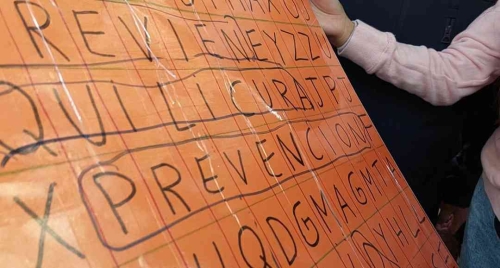 REVIENEYZZ
QUILICURAJP
PREVENCIONE
X UQDGMAGMT
QYHLL